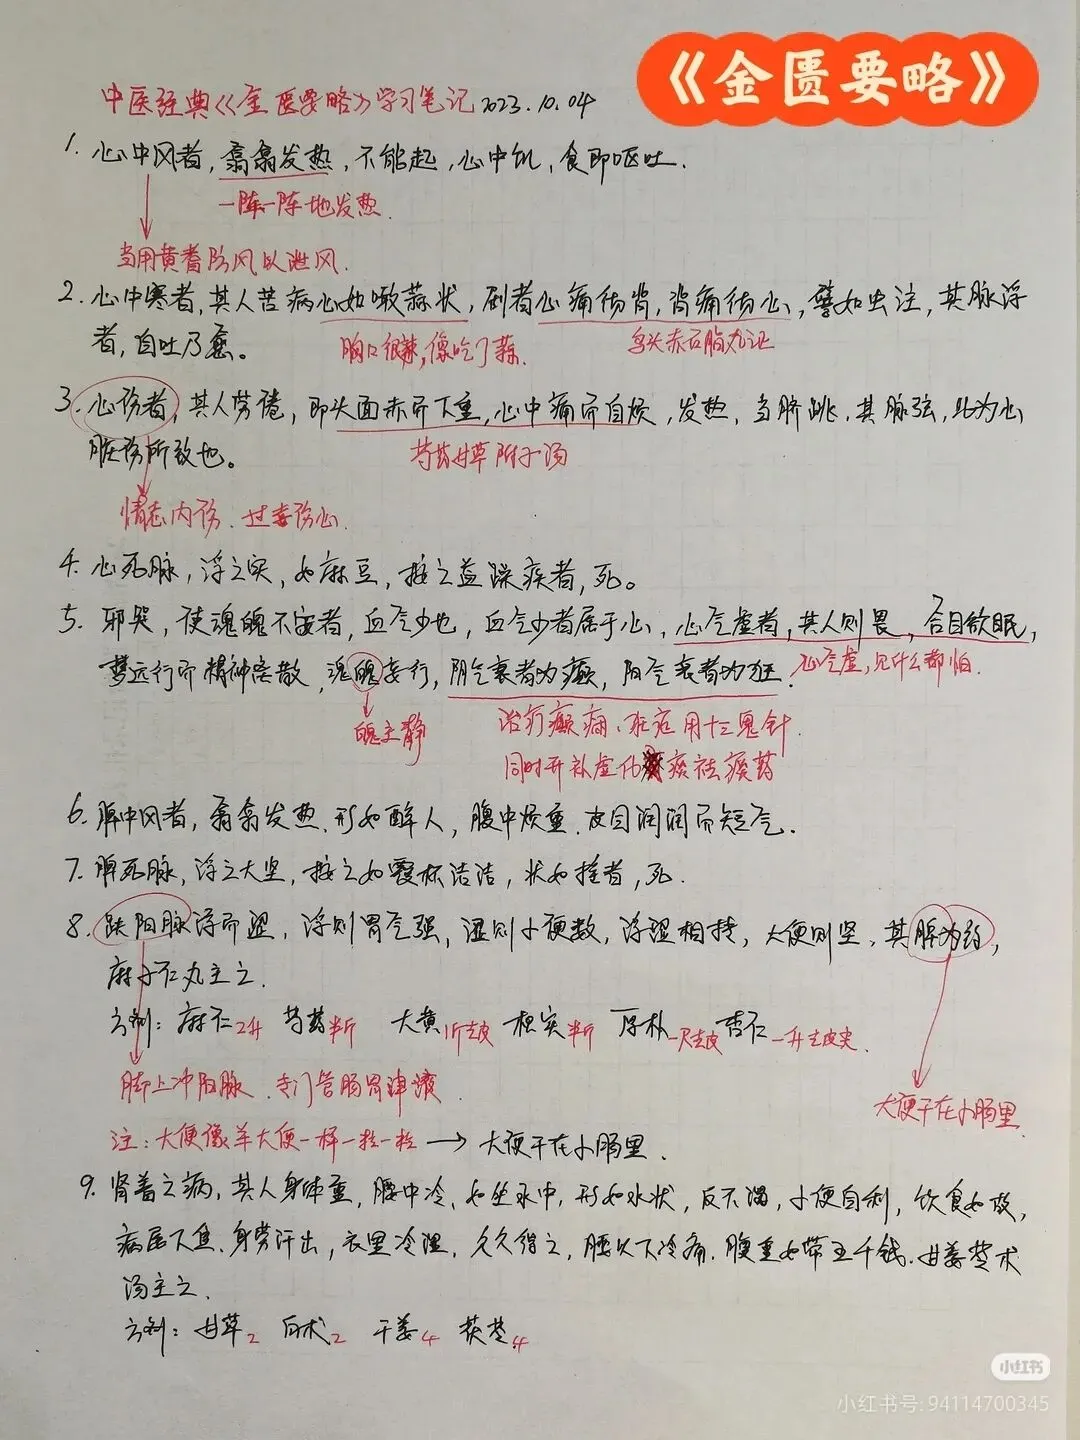 《金匮要略》
中医经典《金匮要略》学习笔记2023.10.04
1. 心中风者，翕翕发热，不能起，心中饥，食即呕吐．
一陈一陈地发热．
当用黄耆防风以泄风．
2. 心中寒者，其人苦病心如噉蒜状，剧者心痛彻背，背痛彻心，譬如虫注，其脉浮
者，自吐乃愈。
胸口很辣，像吃了蒜．
乌头赤石脂丸证
3. 心伤者，其人劳倦，即头面赤而下重，心中痛而自烦，发热，当脐跳，其脉弦，此为心
脏伤所致也。
芍药甘草附子汤
情志内伤．过喜伤心．
4. 心死脉，浮之实，如麻豆，按之益躁疾者，死。
5. 邪哭，使魂魄不安者，血气少也，血气少者属于心，心气虚者，其人则畏，合目欲眠，
梦远行而精神离散，魂魄妄行，阴气衰者为癫，阳气衰者为狂．
心气虚，见什么都怕．
魄主静
治疗癫痫、狂症用十三鬼针．
同时开补虚化痰祛瘀药
6. 脾中风者，翕翕发热．形如醉人，腹中烦重．皮目润润而短气．
7. 脾死脉，浮之大坚，按之如覆杯洁洁，状如摇者，死．
8. 趺阳脉浮而涩，浮则胃气强，涩则小便数，浮涩相抟，大便则坚，其脾为约，
麻子仁丸主之．
方剂：麻仁2升 芍药半斤 大黄1斤去皮 枳实半斤 厚朴一尺去皮 杏仁一升去皮尖．
脚上冲阳脉．专门管肠胃津液．
大便干在小肠里．
注：大便像羊大便一样一粒一粒 → 大便干在小肠里．
9. 肾着之病，其人身体重，腰中冷，如坐水中，形如水状，反不渴，小便自利，饮食如故，
病属下焦．身劳汗出，衣里冷湿，久久得之，腰以下冷痛．腹重如带五千钱．甘姜苓术
汤主之．
方剂：甘草2 白术2 干姜4 茯苓4
小红书
小红书号:94114700345